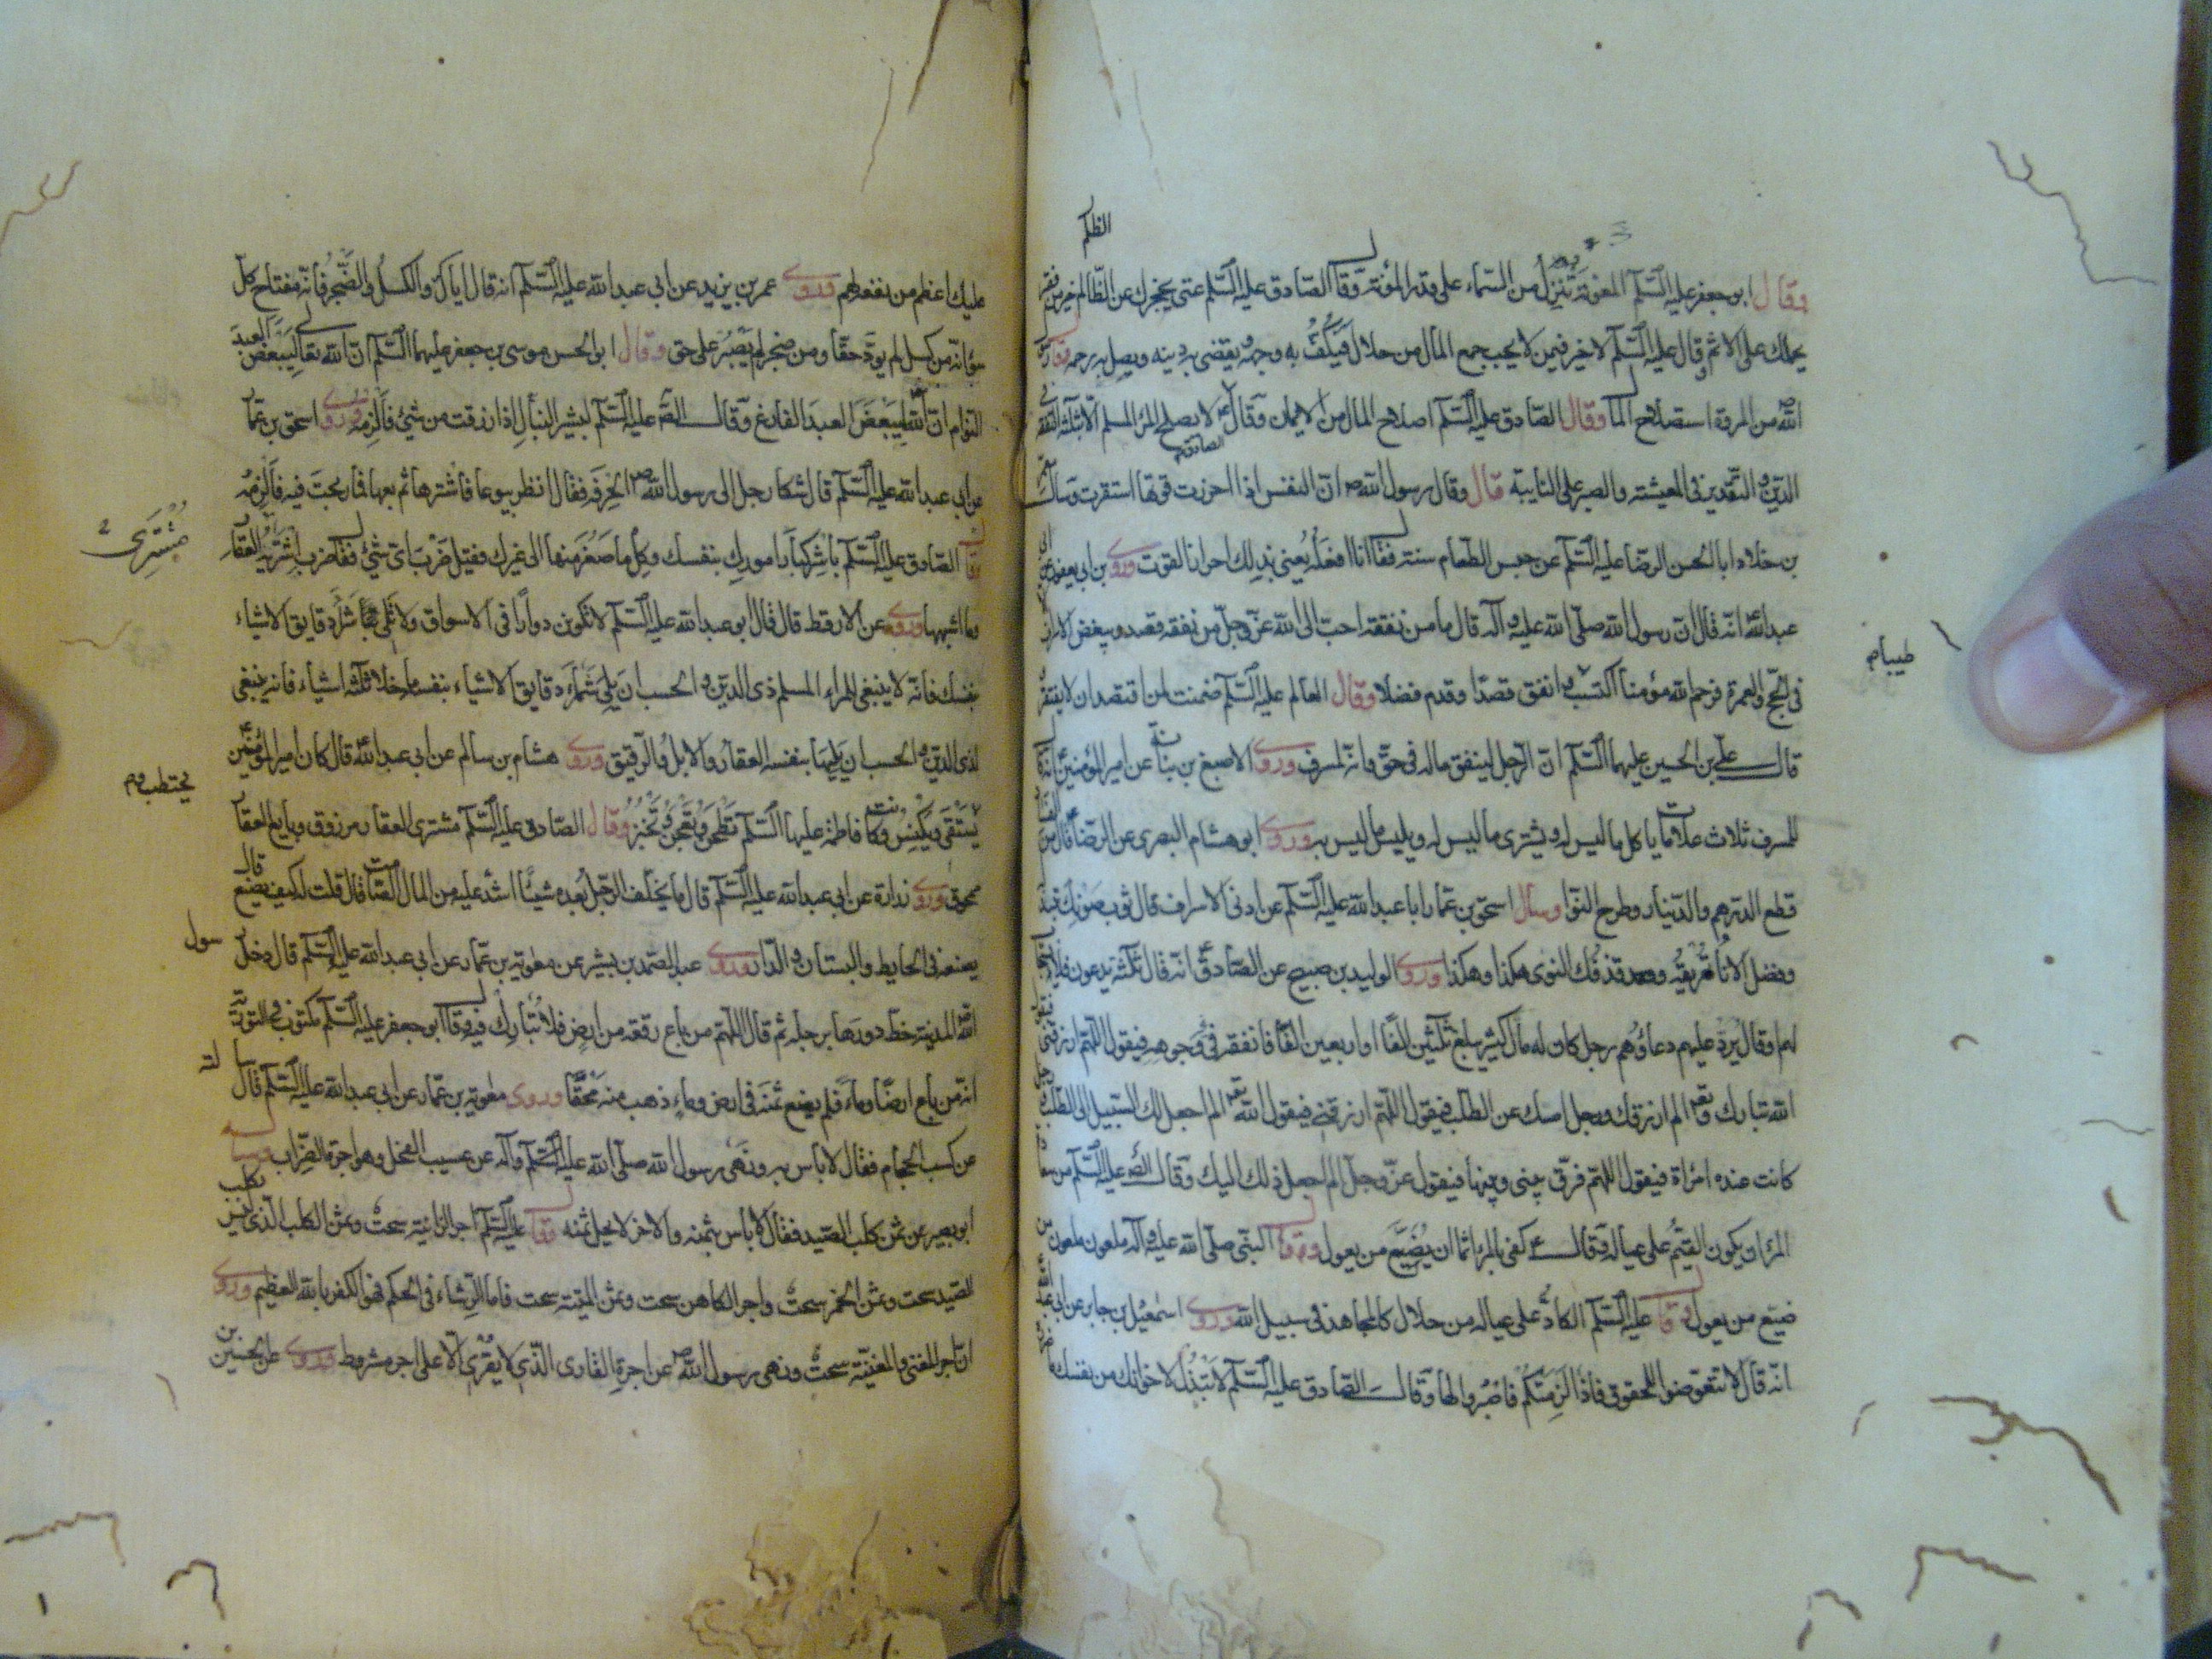 الظلم
وقال ابو جعفر عليه السّلم المعونة تنزل من السّماء على قدر المؤنة وقال الصّادق عليه السّلم غنى يحجزك عن الظّلم خير من فقر
يحملك على الاثم وقال عليه السّلم لا خير فيمن لا يحب جمع المال من حلال فيكفّ به وجهه ويقضى به دينه ويصل به رحمه وقال
الله من المروة استصلاح المال وقال الصّادق عليه السّلم اصلاح المال من الايمان وقال لا يصلح المرء المسلم الا بثلثة التفقه فى
الدّين والتقدير فى المعيشة والصبر على النايبة قال وقال رسول الله ص انّ النفس اذا احرزت قوتها استقرت وسال
بن خلاد ابا الحسن الرضا عليه السّلم عن حبس الطعام سنة فقال انا افعله يعنى بذلك احراز القوت وروى بن ابى يعفور عن ابى
عبد الله انّه قال انّ رسول الله صلّى الله عليه وآله قال ما من نفقة احبّ الى الله عزّ وجلّ من نفقة قصد ويبغض الاسراف
فى الحجّ والعمرة فرحم الله مؤمنا اكتسب وانفق قصدا وقدم فضلا وقال العالم عليه السّلم ضمنت لمن اقتصد ان لا يفتقر
طيبا م
قال على بن الحسين عليهما السّلم انّ الرّجل لينفق ماله فى حقّ وانّه لمسرف وروى الاصبغ بن نباتة عن امير المؤمنين انّه قال
للمسرف ثلاث علامات ياكل ما ليس له ويشترى ما ليس له ويلبس ما ليس له وروى ابو هشام البصرى عن الرضا قال من الفساد
قطع الدرهم والدّينار وطرح النوى وسال اسحق بن عمار ابا عبد الله عليه السّلم عن ادنى الاسراف قال ثوب صونك تبتذله
وفضل الاناء تهريقه وقذفك النوى هكذا وهكذا وروى الوليد بن صبيح عن الصّادق انّه قال ثلثة يدعون فلا يستجاب
لهم او قال يردّ عليهم دعاؤهم رجل كان له مال كثير يبلغ ثلثين الفا او اربعين الفا فانفقه فى وجوهه فيقول اللهم ارزقنى
الله تبارك وتع الم ارزقك ورجل امسك عن الطلب فيقول اللهم ارزقنى فيقول الله تع الم اجعل لك السّبيل الى الطّلب
كانت عنده امراة فيقول اللهم فرّق بينى وبينها فيقول عزّ وجلّ الم اجعل ذلك اليك وقال الصّ عليه السّلم من سعادة
المرء ان يكون القيّم على عياله وقال ع كفى بالمرء اثما ان يضيّع من يعول وقال النبى صلّى الله عليه وآله ملعون ملعون من
ضيّع من يعول وقال عليه السّلم الكادّ على عياله من حلال كالمجاهد فى سبيل الله وروى اسمعيل بن جابر عن ابى عبد الله
انّه قال لا تتعرّضوا للحقوق فاذا لزمتكم فاصبروا لها وقال الصّادق عليه السّلم لا تبذل لاخوانك من نفسك ما
عليك اعظم من نفعه لهم وروى عمر بن يزيد عن ابى عبد الله عليه السّلم انّه قال ايّاك والكسل والضّجر فانّه مفتاح كلّ
سوء انّه من كسل لم يودّ حقّا ومن ضجر لم يصبر على حق وقال ابو الحسن موسى بن جعفر عليهما السّلم انّ الله تعالى ليبغض العبد
النوام انّ الله ليبغض العبد الفارغ وقال الصّ عليه السّلم لبشير النبال اذا رزقت من شئ فالزمه وروى اسحق بن عمّار
عن ابى عبد الله عليه السّلم قال شكا رجل الى رسول الله ص الحرفة فقال انظر بيوعا فاشترها ثم بعها فما ربحت فيه فالزمه
وقال الصّادق عليه السّلم باشر كبار امورك بنفسك وكل ما صغر منها الى غيرك فقيل ضرب اىّ شئ فقال ضرب اشرية العقار
مشترى
وما اشبهها وروى عن الارقط قال قال ابو عبد الله عليه السّلم لا تكونن دوارا فى الاسواق ولا تلى شراء دقايق الاشياء
بنفسك فانّه لا ينبغى للمراء المسلم ذى الدّين والحسب ان يلى شراء دقايق الاشياء بنفسه ما خلا ثلثة اشياء فانّه ينبغى
لذى الدّين والحسب ان يليها بنفسه العقار والابل والرقيق وروى هشام بن سالم عن ابى عبد الله قال كان امير المؤمنين
يحتطب و م
يستقى ويكنس وكانت فاطمة عليها السّلم تطحن وتعجن وتخبز وقال الصّادق عليه السّلم مشترى العقار مرزوق وبايع العقار
ممحوق وروى زرارة عن ابى عبد الله عليه السّلم قال ما يخلّف الرّجل بعده شيئا اشدّ عليه من المال الصّامت قال قلت له كيف يصنع قال
يصنعه فى الحايط والبستان والدّار وروى عبد الصّمد بن بشير عن معوية بن عمار عن ابى عبد الله عليه السّلم قال دخل رسول
الله المدينة خطّ دورها برجله ثم قال اللّهم من باع رقعة من ارض فلا تبارك فيه وقال ابو جعفر عليه السّلم مكتوب فى التورية
انّه من باع ارضا وماء فلم يضع ثمنه فى ارض وماء ذهب منه محقا وروى معوية بن عمّار عن ابى عبد الله عليه السّلم قال سالته
عن كسب الحجام فقال لا باس به ونهى رسول الله صلّى الله عليه وآله عن عسيب الفحل وهو اجرة الضّراب وساله
ابو بصير عن ثمن كلب الصّيد فقال لا بأس بثمنه والاخر لا يحلّ ثمنه وقال عليه السّلم اجر الزانية سحت وثمن الكلب الذى ليس بكلب
الصّيد سحت وثمن الخمر سحت واجر الكاهن سحت وثمن الميتة سحت فاما الرّشاء فى الحكم فهو الكفر بالله العظيم وروى
ان اجر المغنى والمغنيّة سحت ونهى رسول الله ص عن اجرة القارى الّذى لا يقرى الّا على اجر مشروط وروى عن الحسين بن